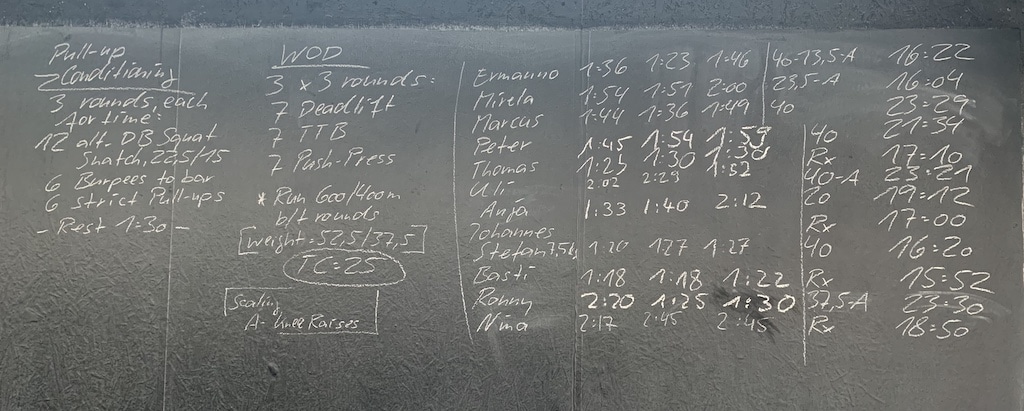 Pull-up
Conditioning
3 rounds, each
for time:
12 alt. DB Squat
Snatch, 22,5/15
6 Burpees to bar
6 strict Pull-ups
- Rest 1:30 -
WOD
3 x 3 rounds:
7 Deadlift
7 TTB
7 Push-Press
* Run 600/400m
b/t rounds
weight = 52,5/37,5
TC = 25
Scaling
A- Knee Raises
Ermanno 1:36 1:23 1:46 40-13,5-A 16:22
Mirela 1:54 1:51 2:00 23,5-A 16:04
Marcus 1:44 1:36 1:49 40 23:29
Peter 1:45 1:54 1:59 40 21:34
Thomas 1:25 1:30 1:30 Rx 17:10
Uli 2:02 2:29 1:52 40-A 23:21
Anja 1:33 1:40 2:12 20 19:12
Johannes Rx 17:00
Stefan 7,5k 1:20 127 1:27 40 16:20
Basti 1:18 1:18 1:22 Rx 15:52
Ronny 2:20 1:25 1:30 37,5-A 23:30
Nina 2:17 2:45 2:45 Rx 18:50